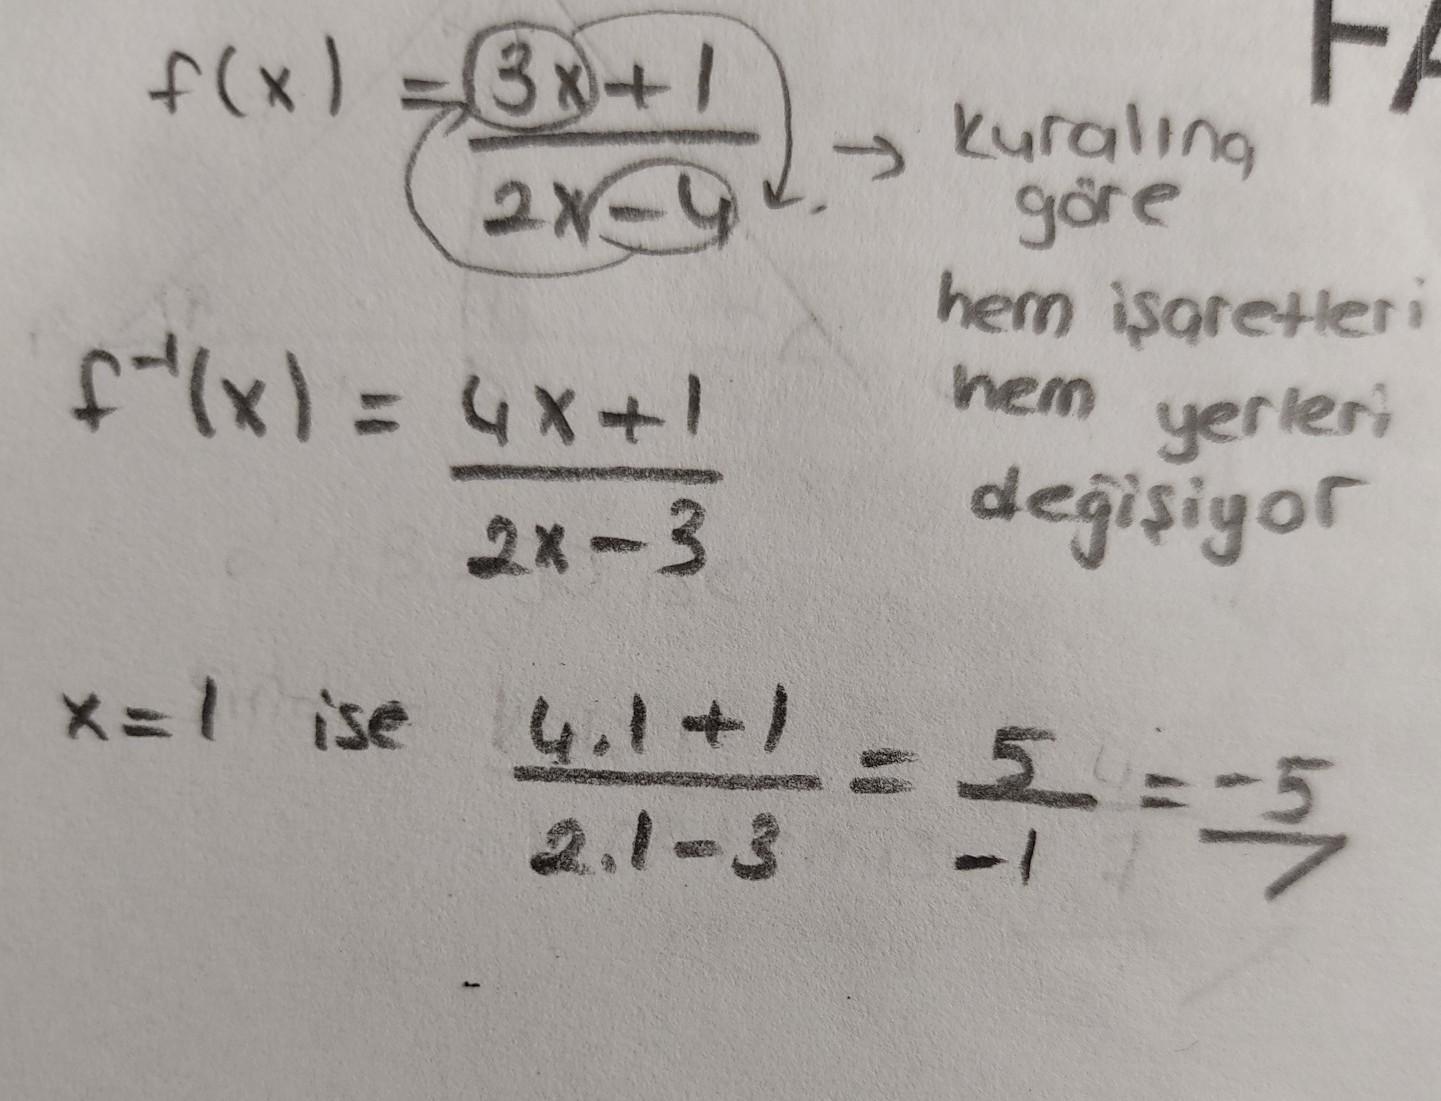 FA
f(x) = (3x+1)/(2x-4) → kuralına
göre
hem işaretleri
hem yerleri
değişiyor
f⁻¹(x) = (4x+1)/(2x-3)
x=1 ise (4.1+1)/(2.1-3) = 5/-1 = -5